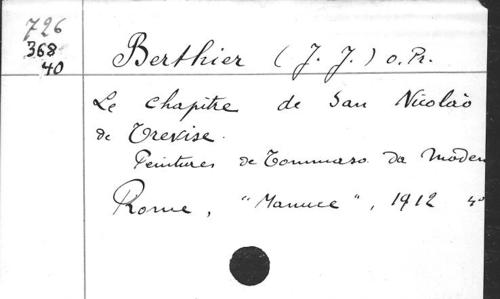 726
368
40
Berthier (J. J.) o. Pr.
Le chapitre de San Nicolaò
de Trevise.
Peintures de Tommaso da Moden
Rome, "Manuce", 1912 4°